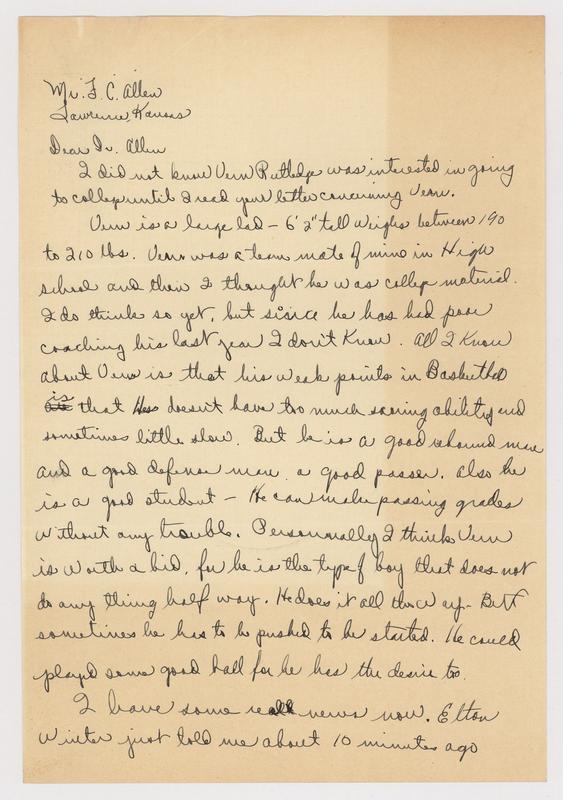 Mr. F. C. Allen
Lawrence, Kansas
Dear Dr. Allen
I did not know Vern Rutledge was interested in going
to college until I read your letter concerning Vern.
Vern is a large lad - 6'2" tall weighs between 190
to 210 lbs. Vern was a team mate of mine in High
school and then I thought he was college material.
I do think so yet, but since he has had poor
coaching his last year I don't know. All I know
about Vern is that his weak points in Basketball
is that He doesn't have too much scoring ability and
sometimes little slow. But he is a good rebound man
and a good defense man, a good passer. Also he
is a good student - He can make passing grades
without any trouble. Personnally I think Vern
is worth a bid, for he is the type of boy that does not
do any thing half way. He does it all the way. But
sometimes he has to be pushed to be started. He could
played some good ball for he has the desire to.
I have some real news now. Elton
Winter just told me about 10 minutes ago